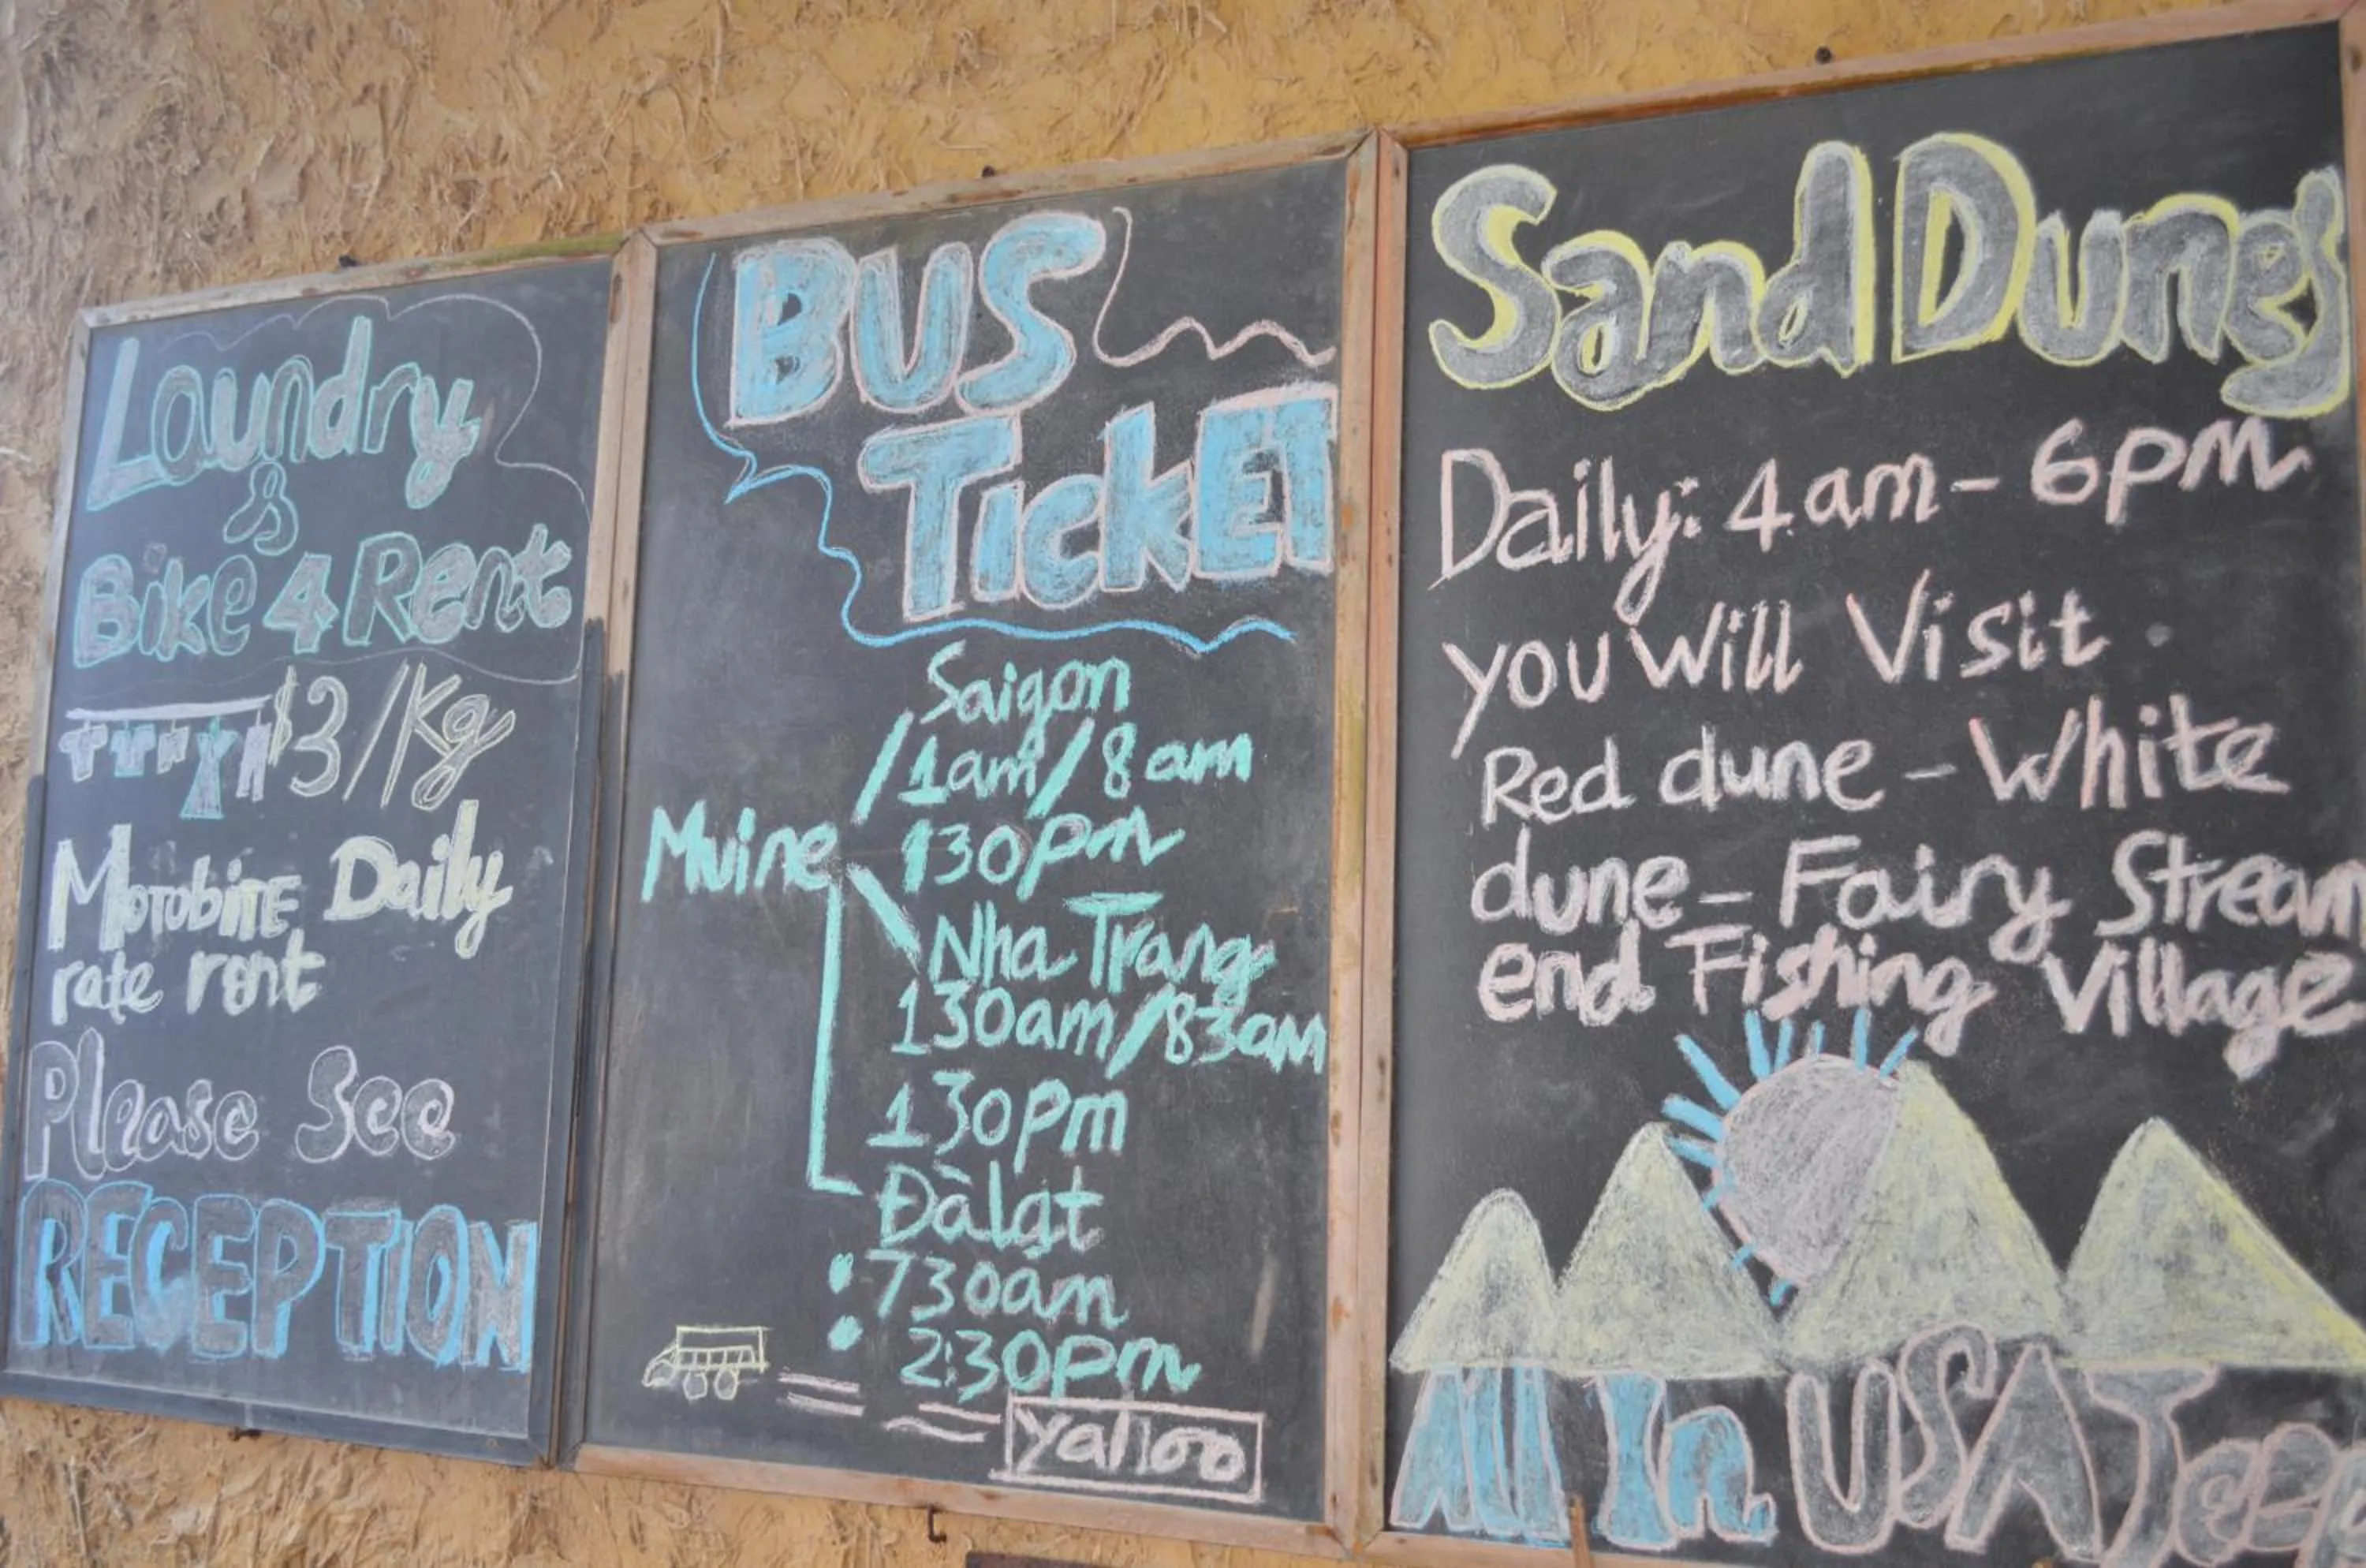 Laundry
&
Bike 4 Rent
$3/Kg
MOTOBITE Daily
rate rent
Please See
RECEPTION
BUS
TICKET
Saigon
/1am/8am
Muine 130pm
Nha Trang
130am/830am
130pm
Đàlạt
: 730am
2:30pm
yalloo
Sand Dunes
Daily: 4am - 6pm
you will Visit
Red dune - White
dune - Fairy Stream
end Fishing Village
All In USA Jeep